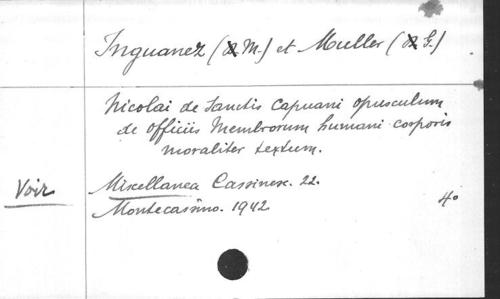 Inguanez (M.) et Muller (G.)
Nicolai de Sanctis Capuani opusculum
de officiis Membrorum humani corporis
moraliter textum.
Voir Miscellanea Cassinex. 22.
Montecassino. 1942 4°